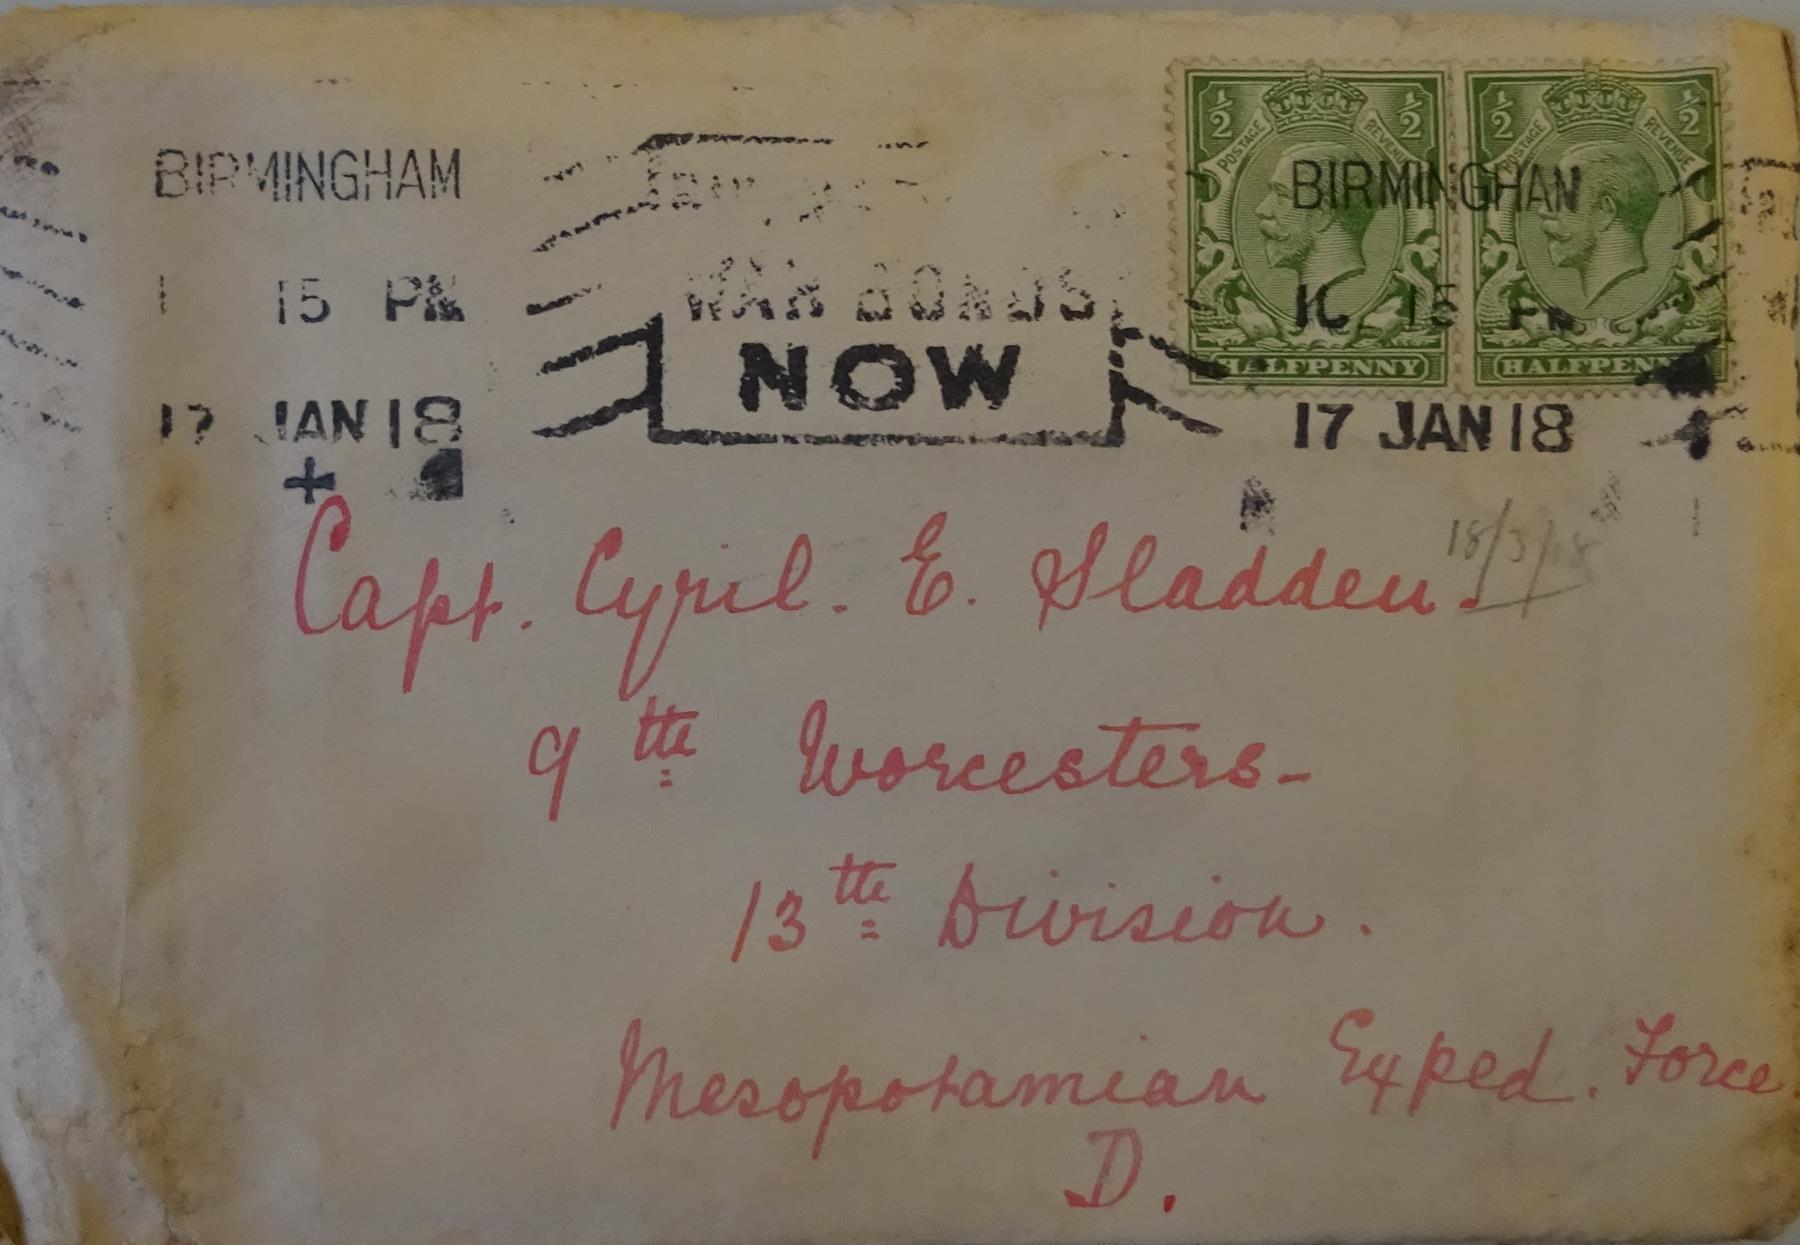 BIRMINGHAM
1 15 PM
17 JAN 18
WAR BONDS
NOW
1/2 POSTAGE REVENUE 1/2
HALFPENNY
1/2 POSTAGE REVENUE 1/2
HALFPENNY
BIRMINGHAM
15 PM
17 JAN 18
Capt. Cyril. E. Sladden.
18/3/18
9th Worcesters-
13th Division.
Mesopotamian Exped. Force.
D.